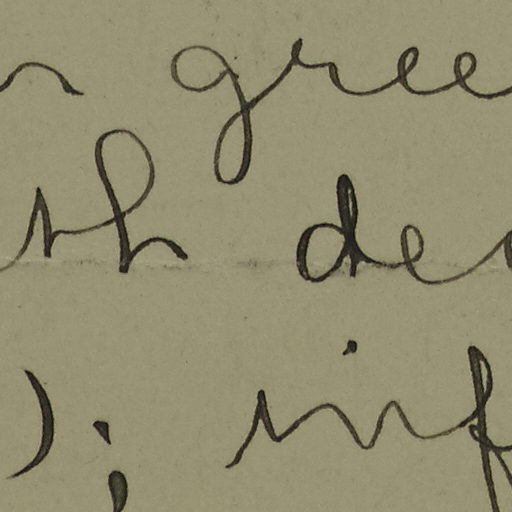 n gree
th de
); inf